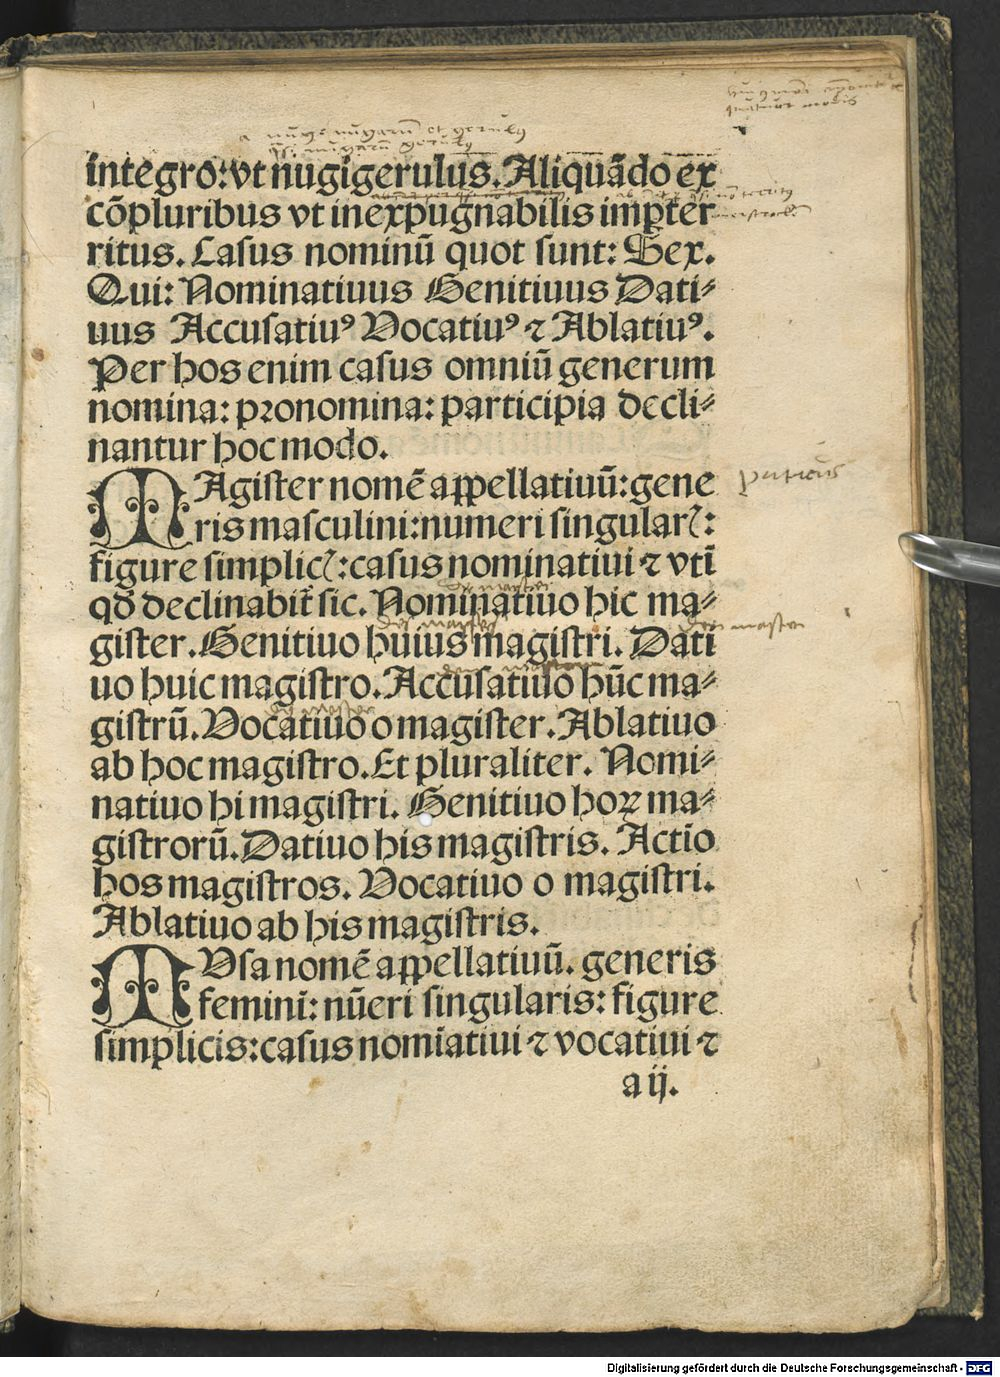 integro: vt nugigerulus. Aliquãdo ex
cõpluribus vt inexpugnabilis imꝑter
ritus. Casus nominũ quot sunt: Sex.
Qui: Nominatiuus Genitiuus Dati⸗
uus Accusatiuꝰ Vocatiuꝰ ⁊ Ablatiuꝰ.
Per hos enim casus omniũ generum
nomina: pronomina: participia decli⸗
nantur hoc modo.
MAgister nomẽ appellatiuũ: gene
ris masculini: numeri singularꝭ:
figure simplicꝭ: casus nominatiui ⁊ vtĩ
qd declinabit̃ sic. Nominatiuo hic ma⸗
gister. Genitiuo huius magistri. Dati
uo huic magistro. Accusatiuo hũc ma⸗
gistrũ. Vocatiuo o magister. Ablatiuo
ab hoc magistro. Et pluraliter. Nomi⸗
natiuo hi magistri. Genitiuo hoꝝ ma⸗
gistrorũ. Datiuo his magistris. Actĩo
hos magistros. Vocatiuo o magistri.
Ablatiuo ab his magistris.
MVsa nomẽ appellatiuũ. generis
feminĩ: nũeri singularis: figure
simplicis: casus nomĩatiui ⁊ vocatiui ⁊
a ij.
Digitalisierung gefördert durch die Deutsche Forschungsgemeinschaft - DFG